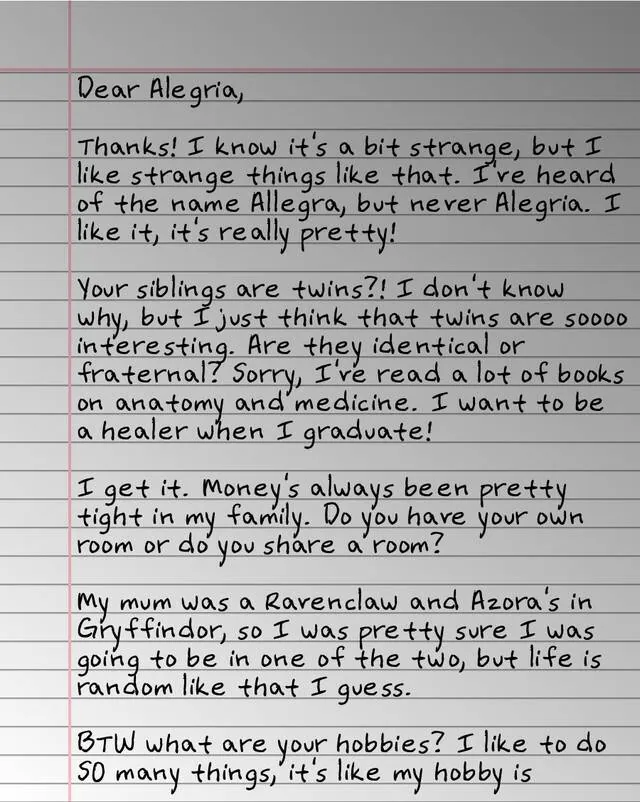 Dear Alegria,
Thanks! I know it's a bit strange, but I
like strange things like that. I've heard
of the name Allegra, but never Alegria. I
like it, it's really pretty!
Your siblings are twins?! I don't know
why, but I just think that twins are soooo
interesting. Are they identical or
fraternal? Sorry, I've read a lot of books
on anatomy and medicine. I want to be
a healer when I graduate!
I get it. Money's always been pretty
tight in my family. Do you have your own
room or do you share a room?
My mum was a Ravenclaw and Azora's in
Gryffindor, so I was pretty sure I was
going to be in one of the two, but life is
random like that I guess.
BTW what are your hobbies? I like to do
SO many things, it's like my hobby is